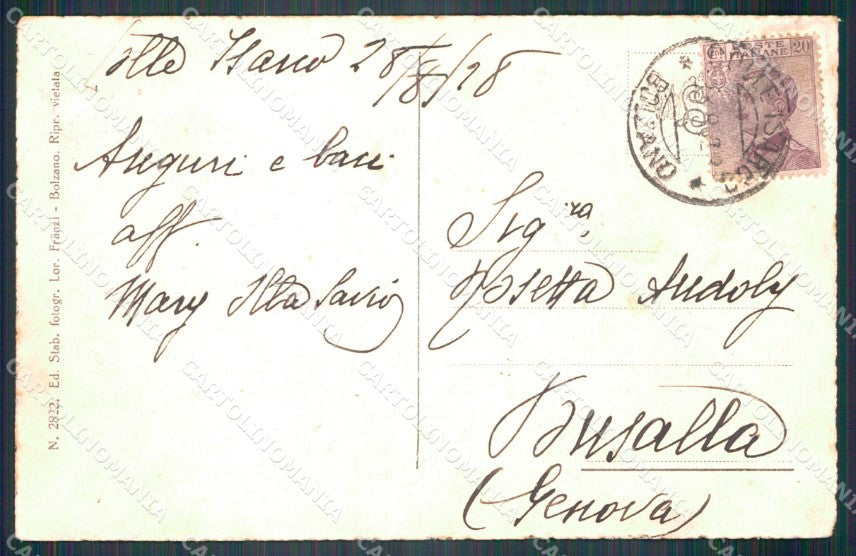 Colle Isarco 28/8/28
Auguri e baci
aff.
Mary
Sig.ra
Rosetta Audoly
Busalla
(Genova)
POSTE ITALIANE 20
COLLE ISARCO
BOLZANO
N. 2822. Ed. Stab. fotogr. Lor. Fränzl - Bolzano. Ripr. vietata
CARTOLINOMANIA